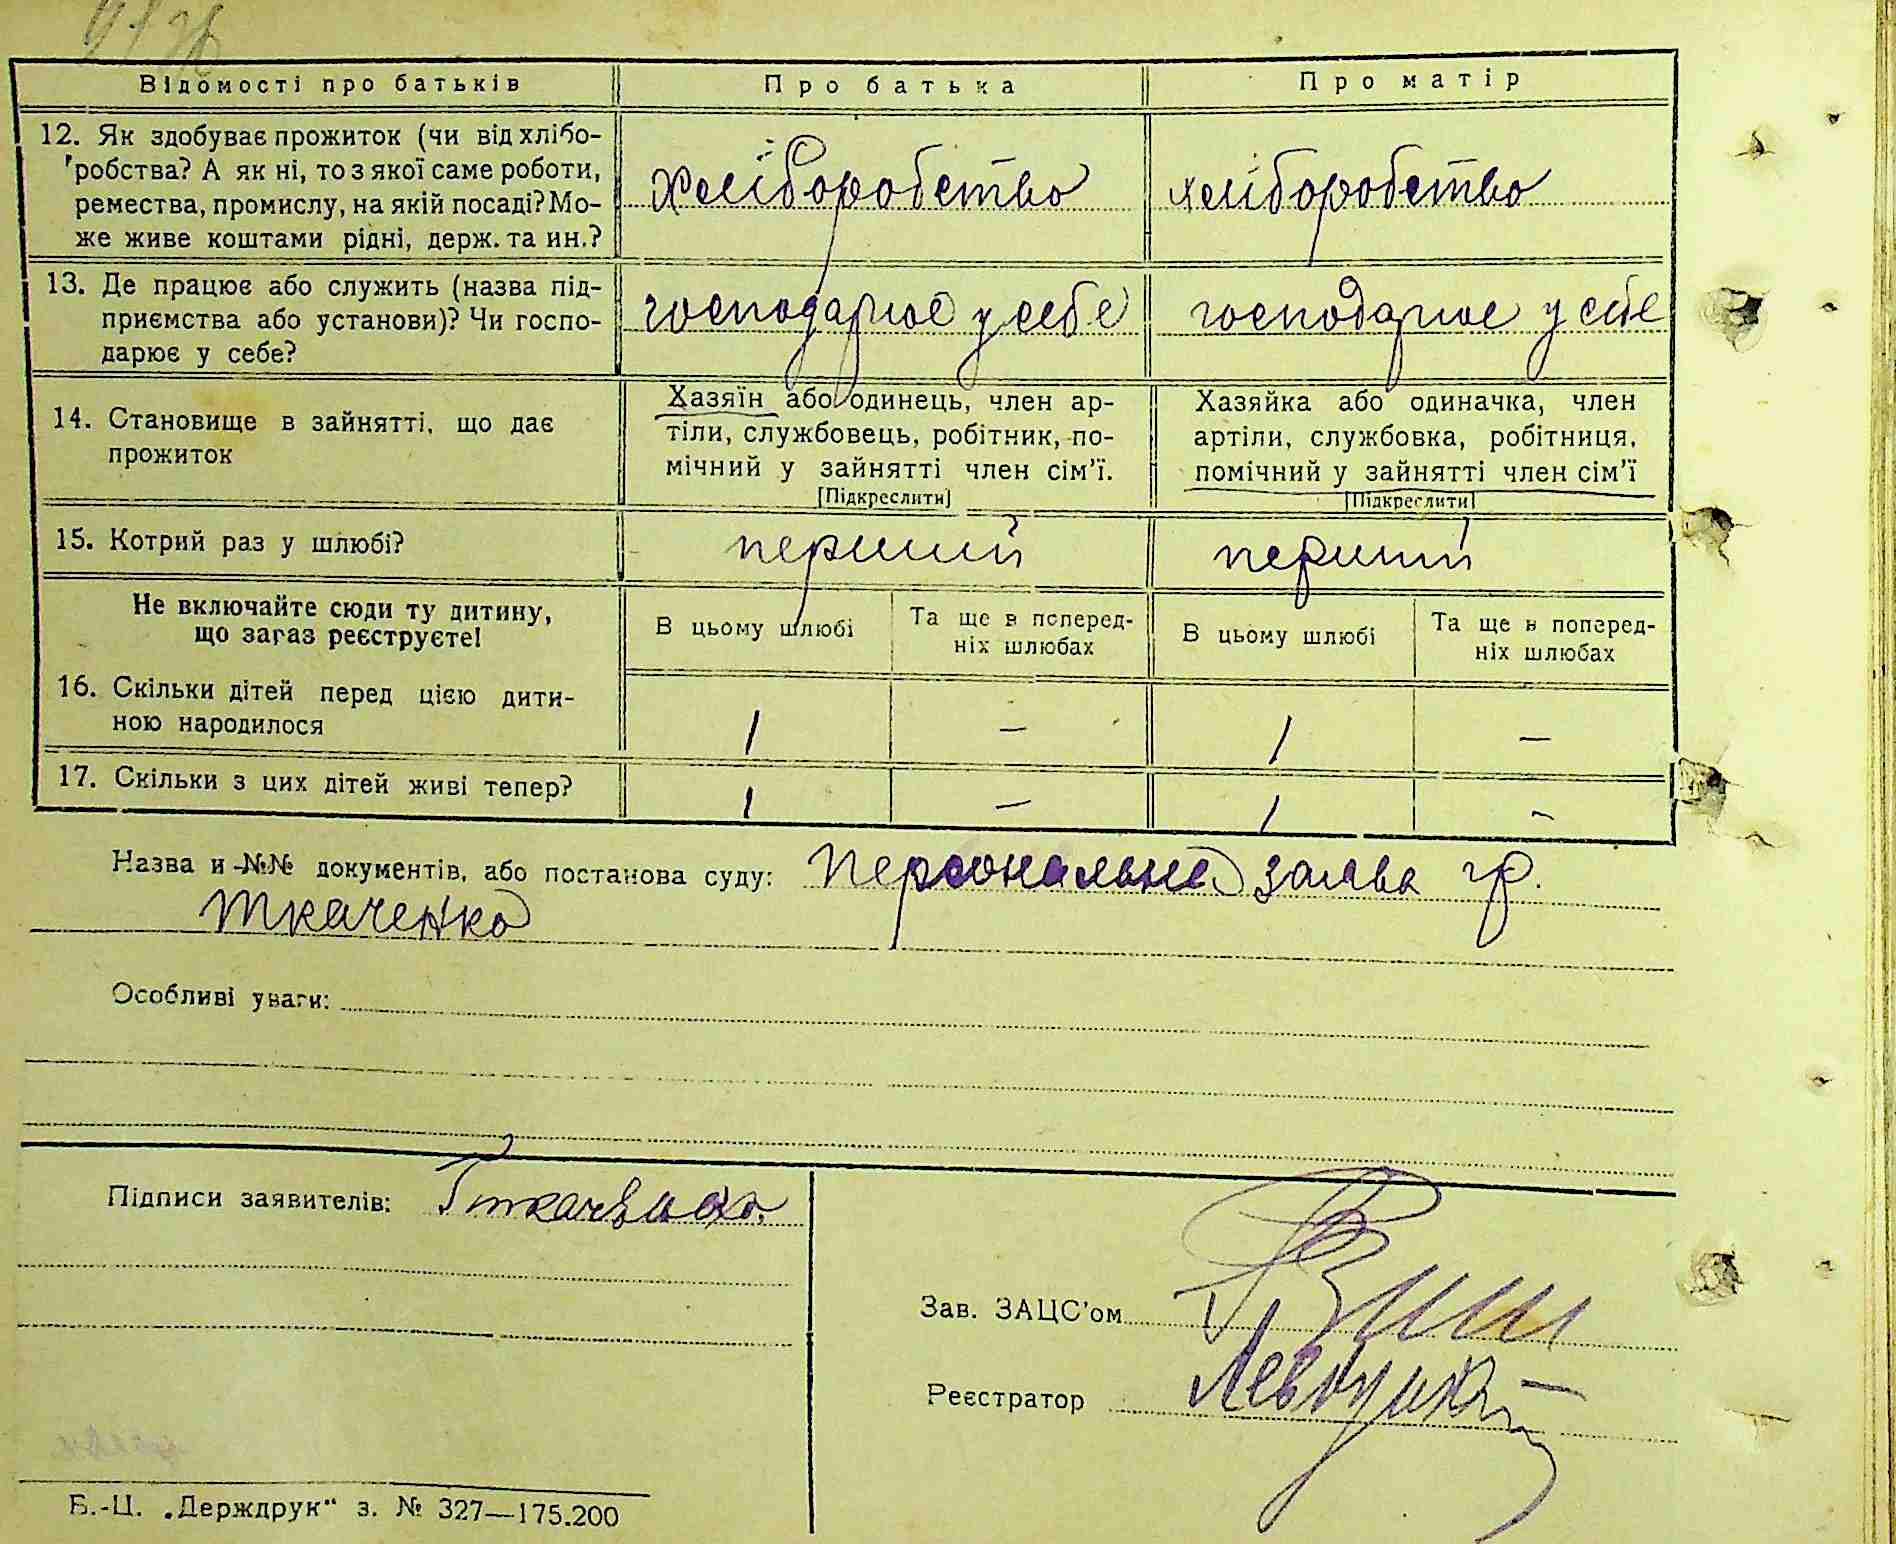 Відомості про батьків Про батька Про матір
12. Як здобуває прожиток (чи від хлібо-
робства? А як ні, то з якої саме роботи,
ремества, промислу, на якій посаді? Мо-
же живе коштами рідні, держ. та ин.?
хліборобство хліборобство
13. Де працює або служить (назва під-
приємства або установи)? Чи госпо-
дарює у себе?
господарює у себе господарює у себе
14. Становище в зайнятті, що дає
прожиток
Хазяїн або одинець, член ар-
тіли, службовець, робітник, по-
мічний у зайнятті член сім'ї.
[Підкреслити]
Хазяйка або одиначка, член
артіли, службовка, робітниця,
помічний у зайнятті член сім'ї
[Підкреслити]
15. Котрий раз у шлюбі? перший перший
Не включайте сюди ту дитину,
що зараз реєструєте!
В цьому шлюбі Та ще в поперед-
ніх шлюбах В цьому шлюбі Та ще в поперед-
ніх шлюбах
16. Скільки дітей перед цією дити-
ною народилося 1 — 1 —
17. Скільки з цих дітей живі тепер? 1 — 1 -
Назва и №№ документів, або постанова суду: персональна заява гр.
Ткаченко
Особливі уваги:
Підписи заявителів:
Зав. ЗАЦС'ом
Реєстратор
Б.-Ц. „Держдрук" з. № 327—175.200